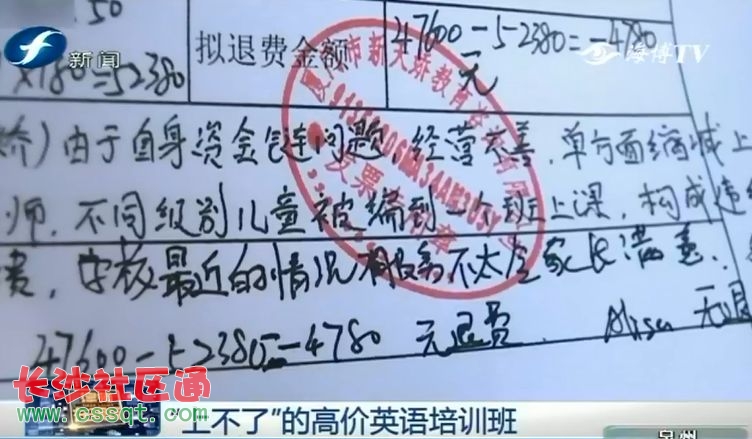 .50
新闻
拟退费金额
47600-52380=-4780
元
海博TV
×180=52380
厦门市新天娇教育咨询有限公司
发票专用章
娇)由于自身资金链问题 经营不善,单方面缩减上
师,不同级别儿童被编到一个班上课,构成违
责,学校最近的情况 不太令家长满意,
47600-52380=-4780 元退费 Alisa 无退
长沙社区通
www.cssqt.com
“上不了”的高价英语培训班
泉州